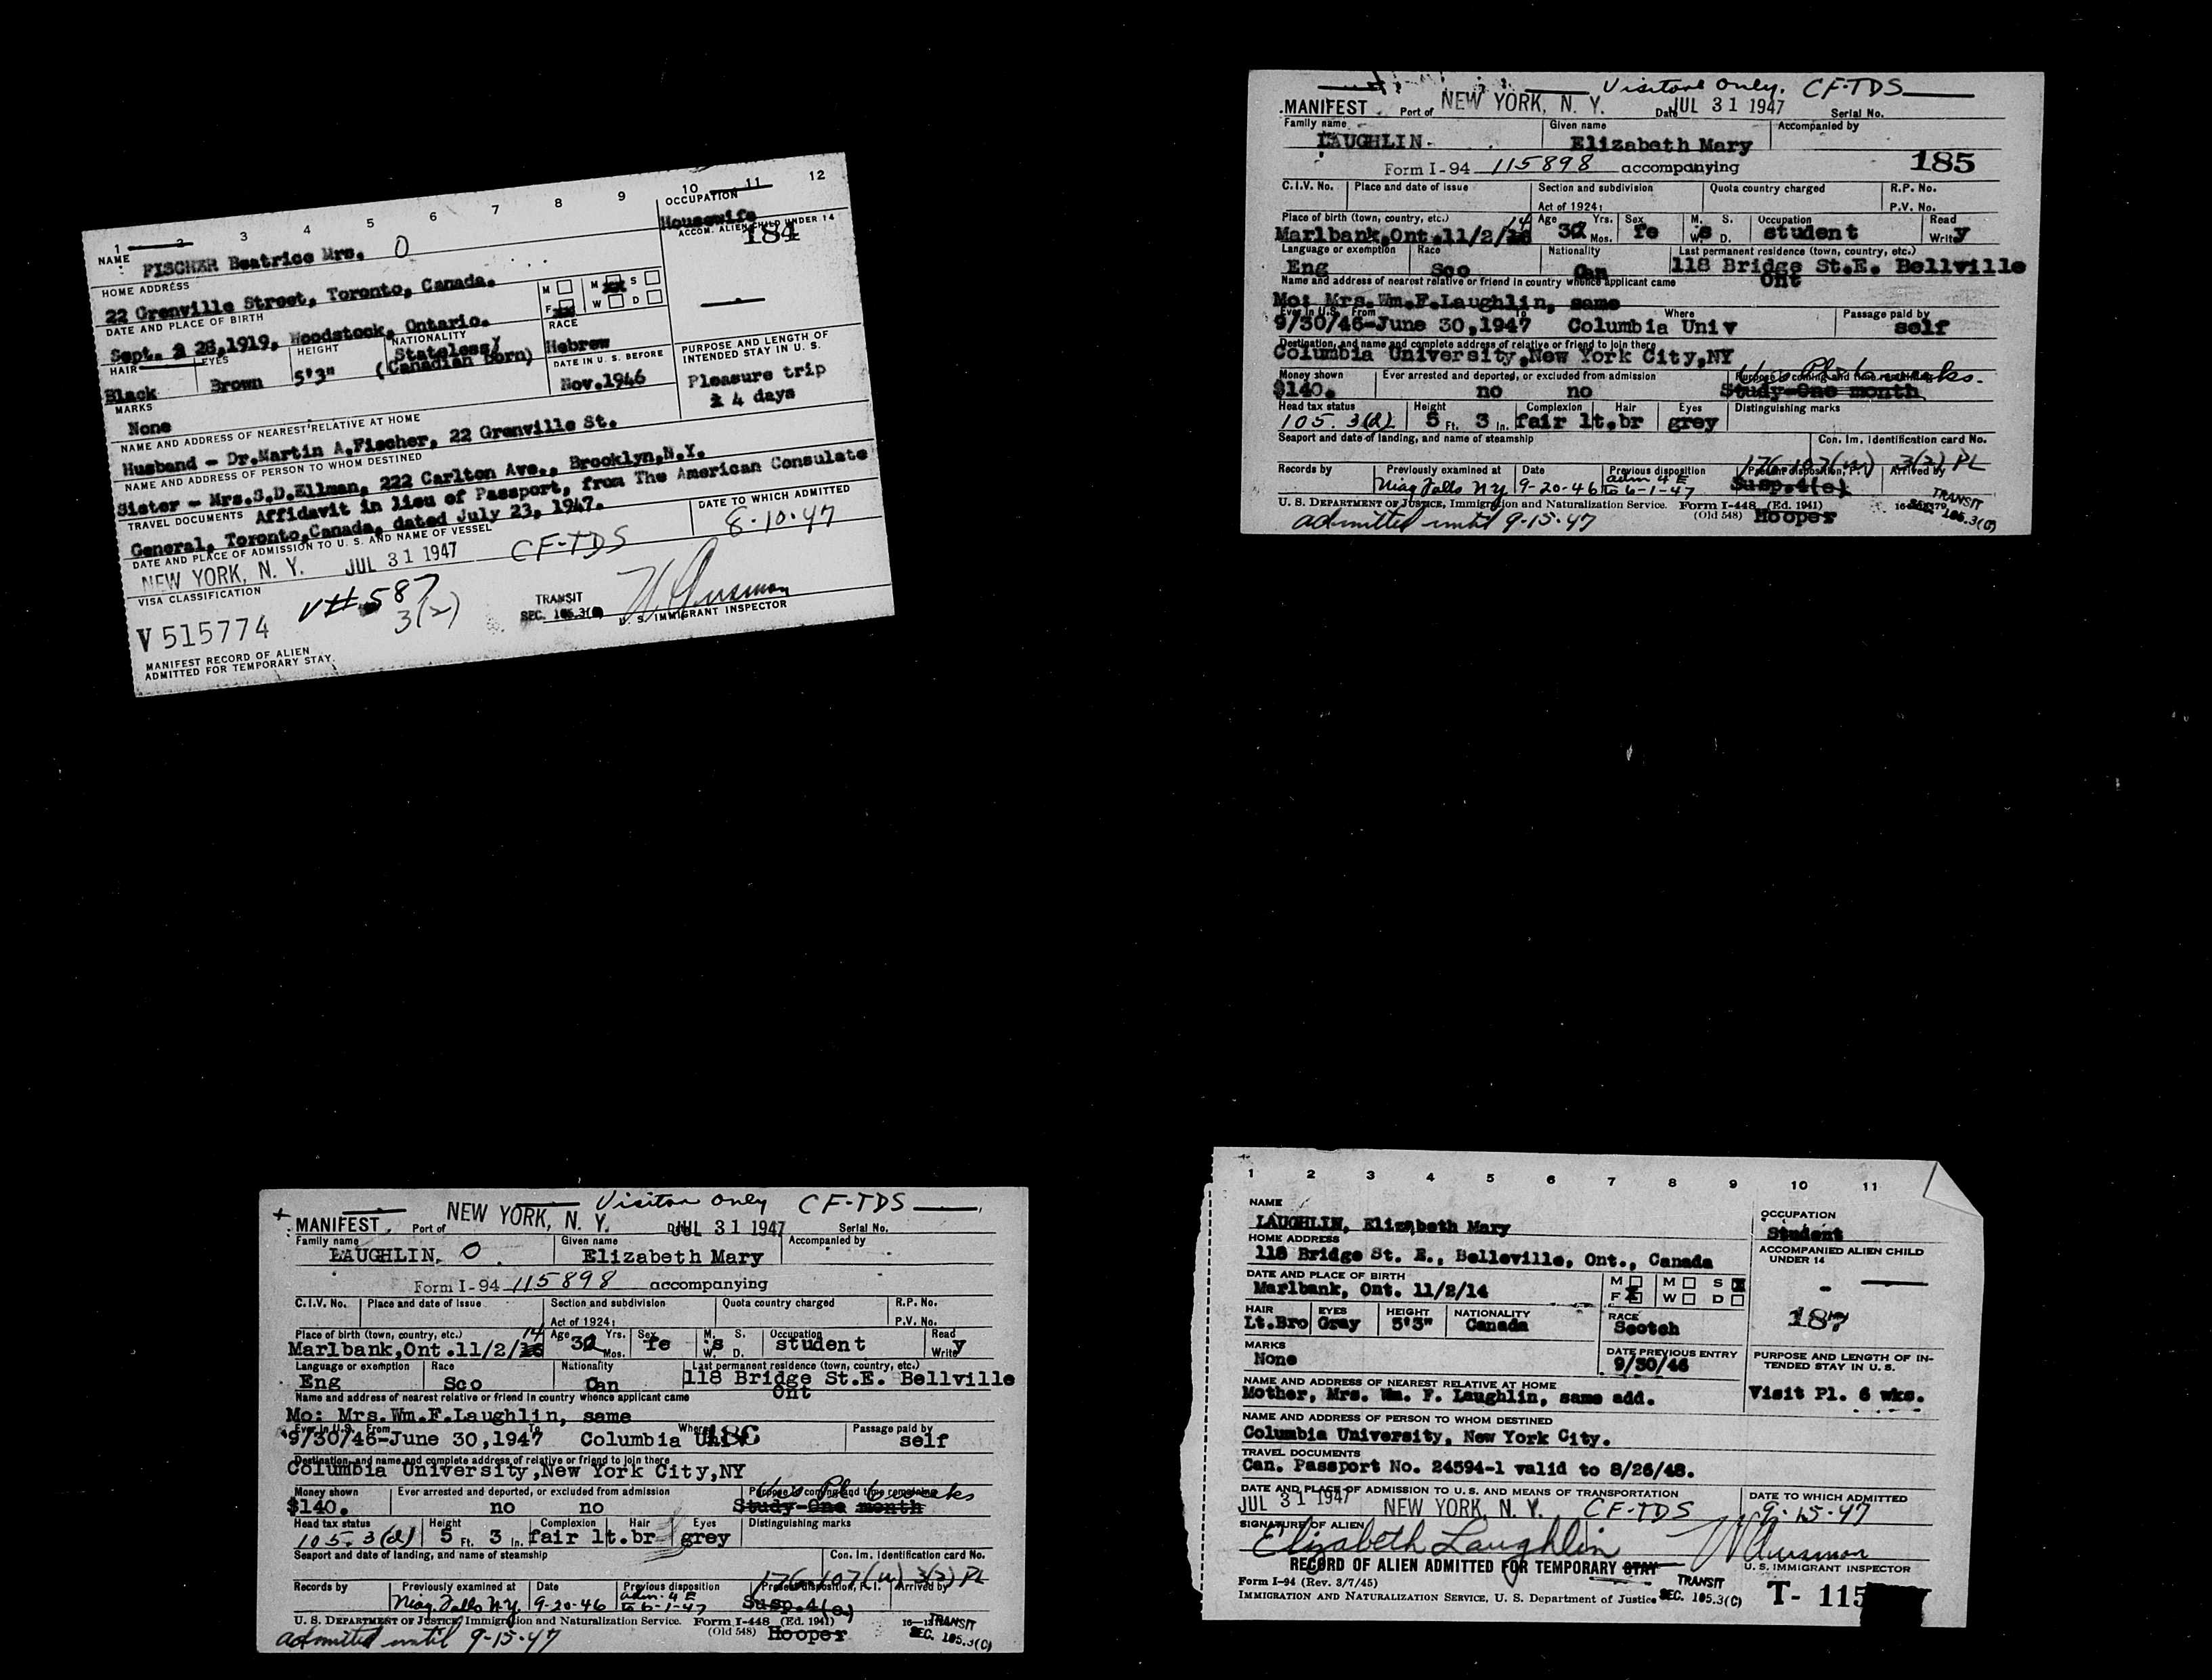 1 2 3 4 5 6 7 8 9 10 11 12
NAME FISCHER Beatrice Mrs. O
OCCUPATION
Housewife
ACCOM. ALIEN CHILD UNDER 14
184
HOME ADDRESS
22 Grenville Street, Toronto, Canada.
M M S
F W D
DATE AND PLACE OF BIRTH
Sept. 28,1919, Woodstock, Ontario.
RACE
Hebrew
HAIR EYES HEIGHT NATIONALITY
Black Brown 5'3" Stateless/
(Canadian born)
DATE IN U. S. BEFORE
Nov.1946
PURPOSE AND LENGTH OF
INTENDED STAY IN U. S.
Pleasure trip
4 days
MARKS
None
NAME AND ADDRESS OF NEAREST RELATIVE AT HOME
Husband - Dr.Martin A.Fischer, 22 Grenville St.
NAME AND ADDRESS OF PERSON TO WHOM DESTINED
Sister - Mrs.S.D.Ellman, 222 Carlton Ave., Brooklyn,N.Y.
TRAVEL DOCUMENTS Affidavit in lieu of Passport, from The American Consulate
General, Toronto,Canada, dated July 23, 1947.
DATE AND PLACE OF ADMISSION TO U. S. AND NAME OF VESSEL
NEW YORK, N. Y. JUL 31 1947 CF-TDS
DATE TO WHICH ADMITTED
8-10-47
VISA CLASSIFICATION
V# 587
3(2)
V 515774
TRANSIT
SEC. 105.3(
U. S. IMMIGRANT INSPECTOR
MANIFEST RECORD OF ALIEN
ADMITTED FOR TEMPORARY STAY.
Visitor only. CF-TDS
MANIFEST Port of NEW YORK, N. Y. Date JUL 31 1947 Serial No.
Family name Given name Accompanied by
LAUGHLIN. Elizabeth Mary
Form I-94 115898 accompanying 185
C.I.V. No. Place and date of issue Section and subdivision Quota country charged R.P. No.
Act of 1924: P.V. No.
Place of birth (town, country, etc.) Age Yrs. Sex M. S. Occupation Read
Marlbank,Ont.11/2/14 32 Mos. fe W. s D. student Write y
Language or exemption Race Nationality Last permanent residence (town, country, etc.)
Eng Sco Can 118 Bridge St.E. Bellville
Ont
Name and address of nearest relative or friend in country whence applicant came
Mo: Mrs.Wm.F.Laughlin, same
Ever in U.S. From To Where Passage paid by
9/30/46-June 30,1947 Columbia Univ self
Destination, and name and complete address of relative or friend to join there
Columbia University,New York City,NY
Money shown Ever arrested and deported, or excluded from admission Purpose of coming and time remaining
$140. no no Vis Pl. 6 weeks.
Study-One month
Head tax status Height Complexion Hair Eyes Distinguishing marks
105.3(d) 5 Ft. 3 In. fair lt.br grey
Seaport and date of landing, and name of steamship Con. Im. Identification card No.
176.107(u) 3(2) PL
Records by Previously examined at Date Previous disposition Present disposition, P. I. Arrived by
Niag Falls NY 9-20-46 adm 4 E to 6-1-47 Susp.4(e)
U. S. DEPARTMENT OF JUSTICE, Immigration and Naturalization Service. Form I-448 (Ed. 1941)
(Old 548) Hooper
TRANSIT
SEC. 105.3(C)
admitted until 9-15-47
Visitor only CF-TDS
MANIFEST Port of NEW YORK, N. Y. Date JUL 31 1947 Serial No.
Family name Given name Accompanied by
LAUGHLIN, O Elizabeth Mary
Form I-94 115898 accompanying
C.I.V. No. Place and date of issue Section and subdivision Quota country charged R.P. No.
Act of 1924: P.V. No.
Place of birth (town, country, etc.) Age Yrs. Sex M. S. Occupation Read
Marlbank,Ont.11/2/14 32 Mos. fe W. s D. student Write y
Language or exemption Race Nationality Last permanent residence (town, country, etc.)
Eng Sco Can 118 Bridge St.E. Bellville
Ont
Name and address of nearest relative or friend in country whence applicant came
Mo: Mrs.Wm.F.Laughlin, same
Ever in U.S. From To Where Passage paid by
9/30/46-June 30,1947 Columbia Univ 186 self
Destination, and name and complete address of relative or friend to join there
Columbia University,New York City,NY
Money shown Ever arrested and deported, or excluded from admission Purpose of coming and time remaining
$140. no no Vis Pl. 6 weeks
Study-One month
Head tax status Height Complexion Hair Eyes Distinguishing marks
105.3(d) 5 Ft. 3 In. fair lt.br grey
Seaport and date of landing, and name of steamship Con. Im. Identification card No.
176.107(u) 3(2) PL
Records by Previously examined at Date Previous disposition Present disposition, P. I. Arrived by
Niag. Falls N.Y. 9-20-46 adm. 4 E to 6-1-47 Susp.4(e)
U. S. DEPARTMENT OF JUSTICE, Immigration and Naturalization Service. Form I-448 (Ed. 1941)
(Old 548) Hooper
TRANSIT
SEC. 105.3(C)
admitted until 9-15-47
1 2 3 4 5 6 7 8 9 10 11
NAME
LAUGHLIN, Elizabeth Mary
OCCUPATION
Student
HOME ADDRESS
118 Bridge St. E., Belleville, Ont., Canada
ACCOMPANIED ALIEN CHILD
UNDER 14
-
DATE AND PLACE OF BIRTH
Marlbank, Ont. 11/2/14
M M S
F W D
187
HAIR EYES HEIGHT NATIONALITY RACE
Lt.Bro Gray 5'3" Canada Scotch
MARKS
None
DATE PREVIOUS ENTRY
9/30/46
PURPOSE AND LENGTH OF IN-
TENDED STAY IN U. S.
Visit Pl. 6 wks.
NAME AND ADDRESS OF NEAREST RELATIVE AT HOME
Mother, Mrs. Wm. F. Laughlin, same add.
NAME AND ADDRESS OF PERSON TO WHOM DESTINED
Columbia University, New York City.
TRAVEL DOCUMENTS
Can. Passport No. 24594-1 valid to 8/26/48.
DATE AND PLACE OF ADMISSION TO U. S. AND MEANS OF TRANSPORTATION
JUL 31 1947 NEW YORK, N. Y. CF-TDS
DATE TO WHICH ADMITTED
9-15-47
SIGNATURE OF ALIEN
Elizabeth Laughlin
RECORD OF ALIEN ADMITTED FOR TEMPORARY STAY
U. S. IMMIGRANT INSPECTOR
Form I-94 (Rev. 3/7/45)
IMMIGRATION AND NATURALIZATION SERVICE, U. S. Department of Justice
TRANSIT
SEC. 105.3(C)
T- 115